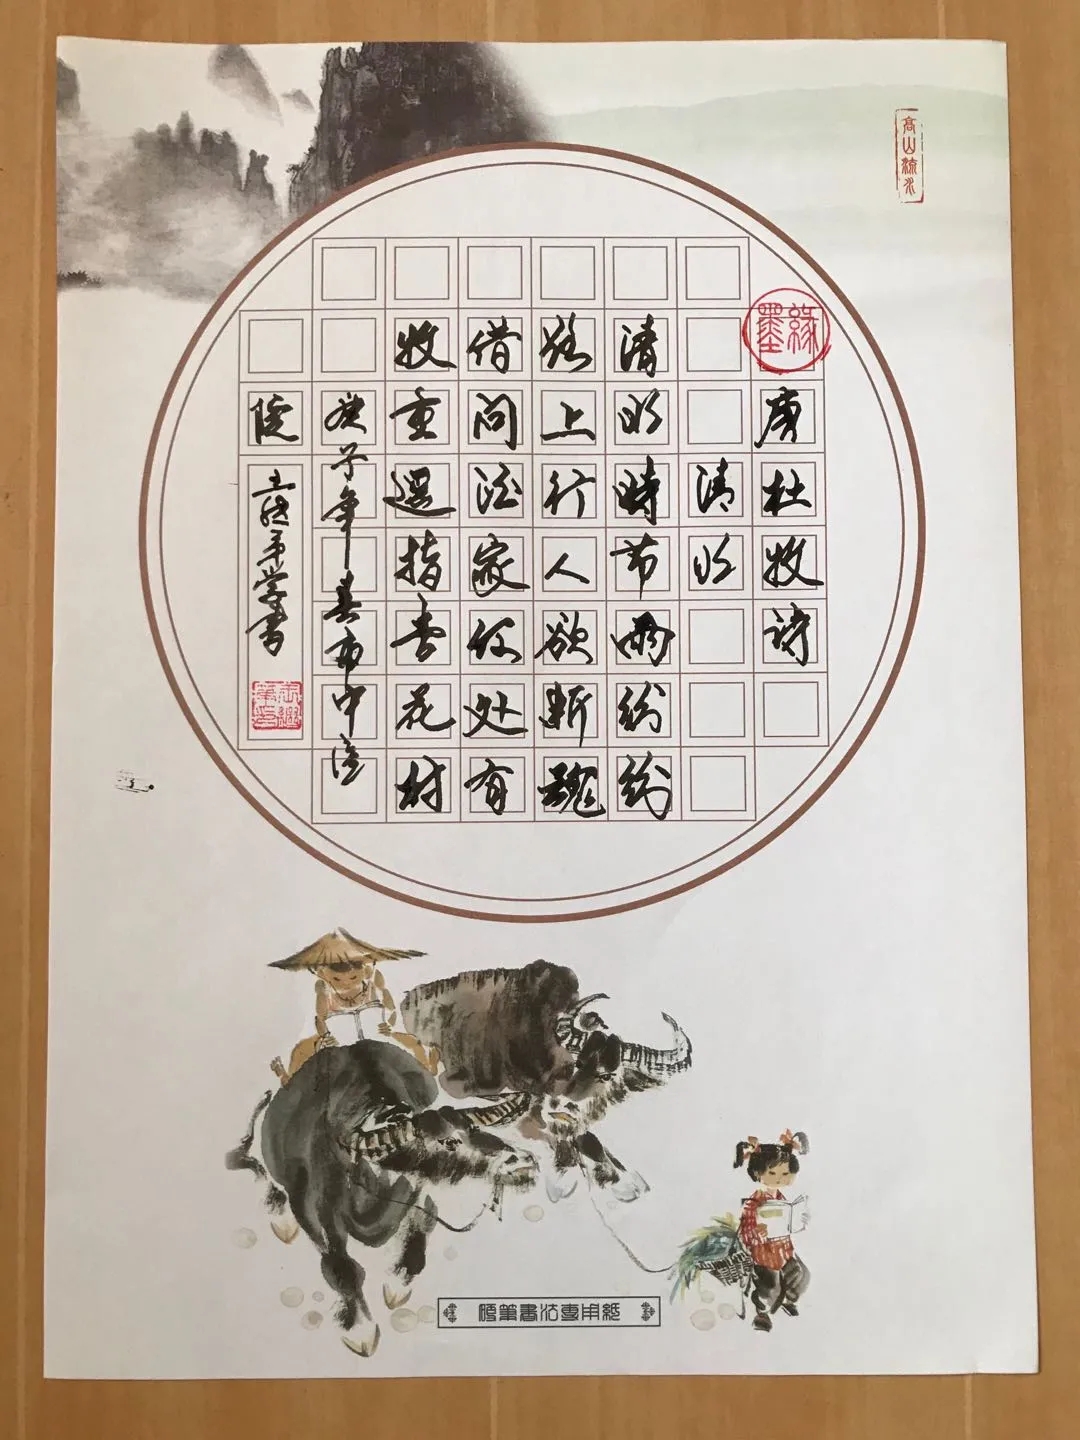 高山流水
墨緣
唐杜牧诗
清明
清明時节雨纷纷
路上行人欲断魂
借问酒家何处有
牧童遥指杏花村
庚子年春市中医
院 王继 学书
硬筆書法專用紙